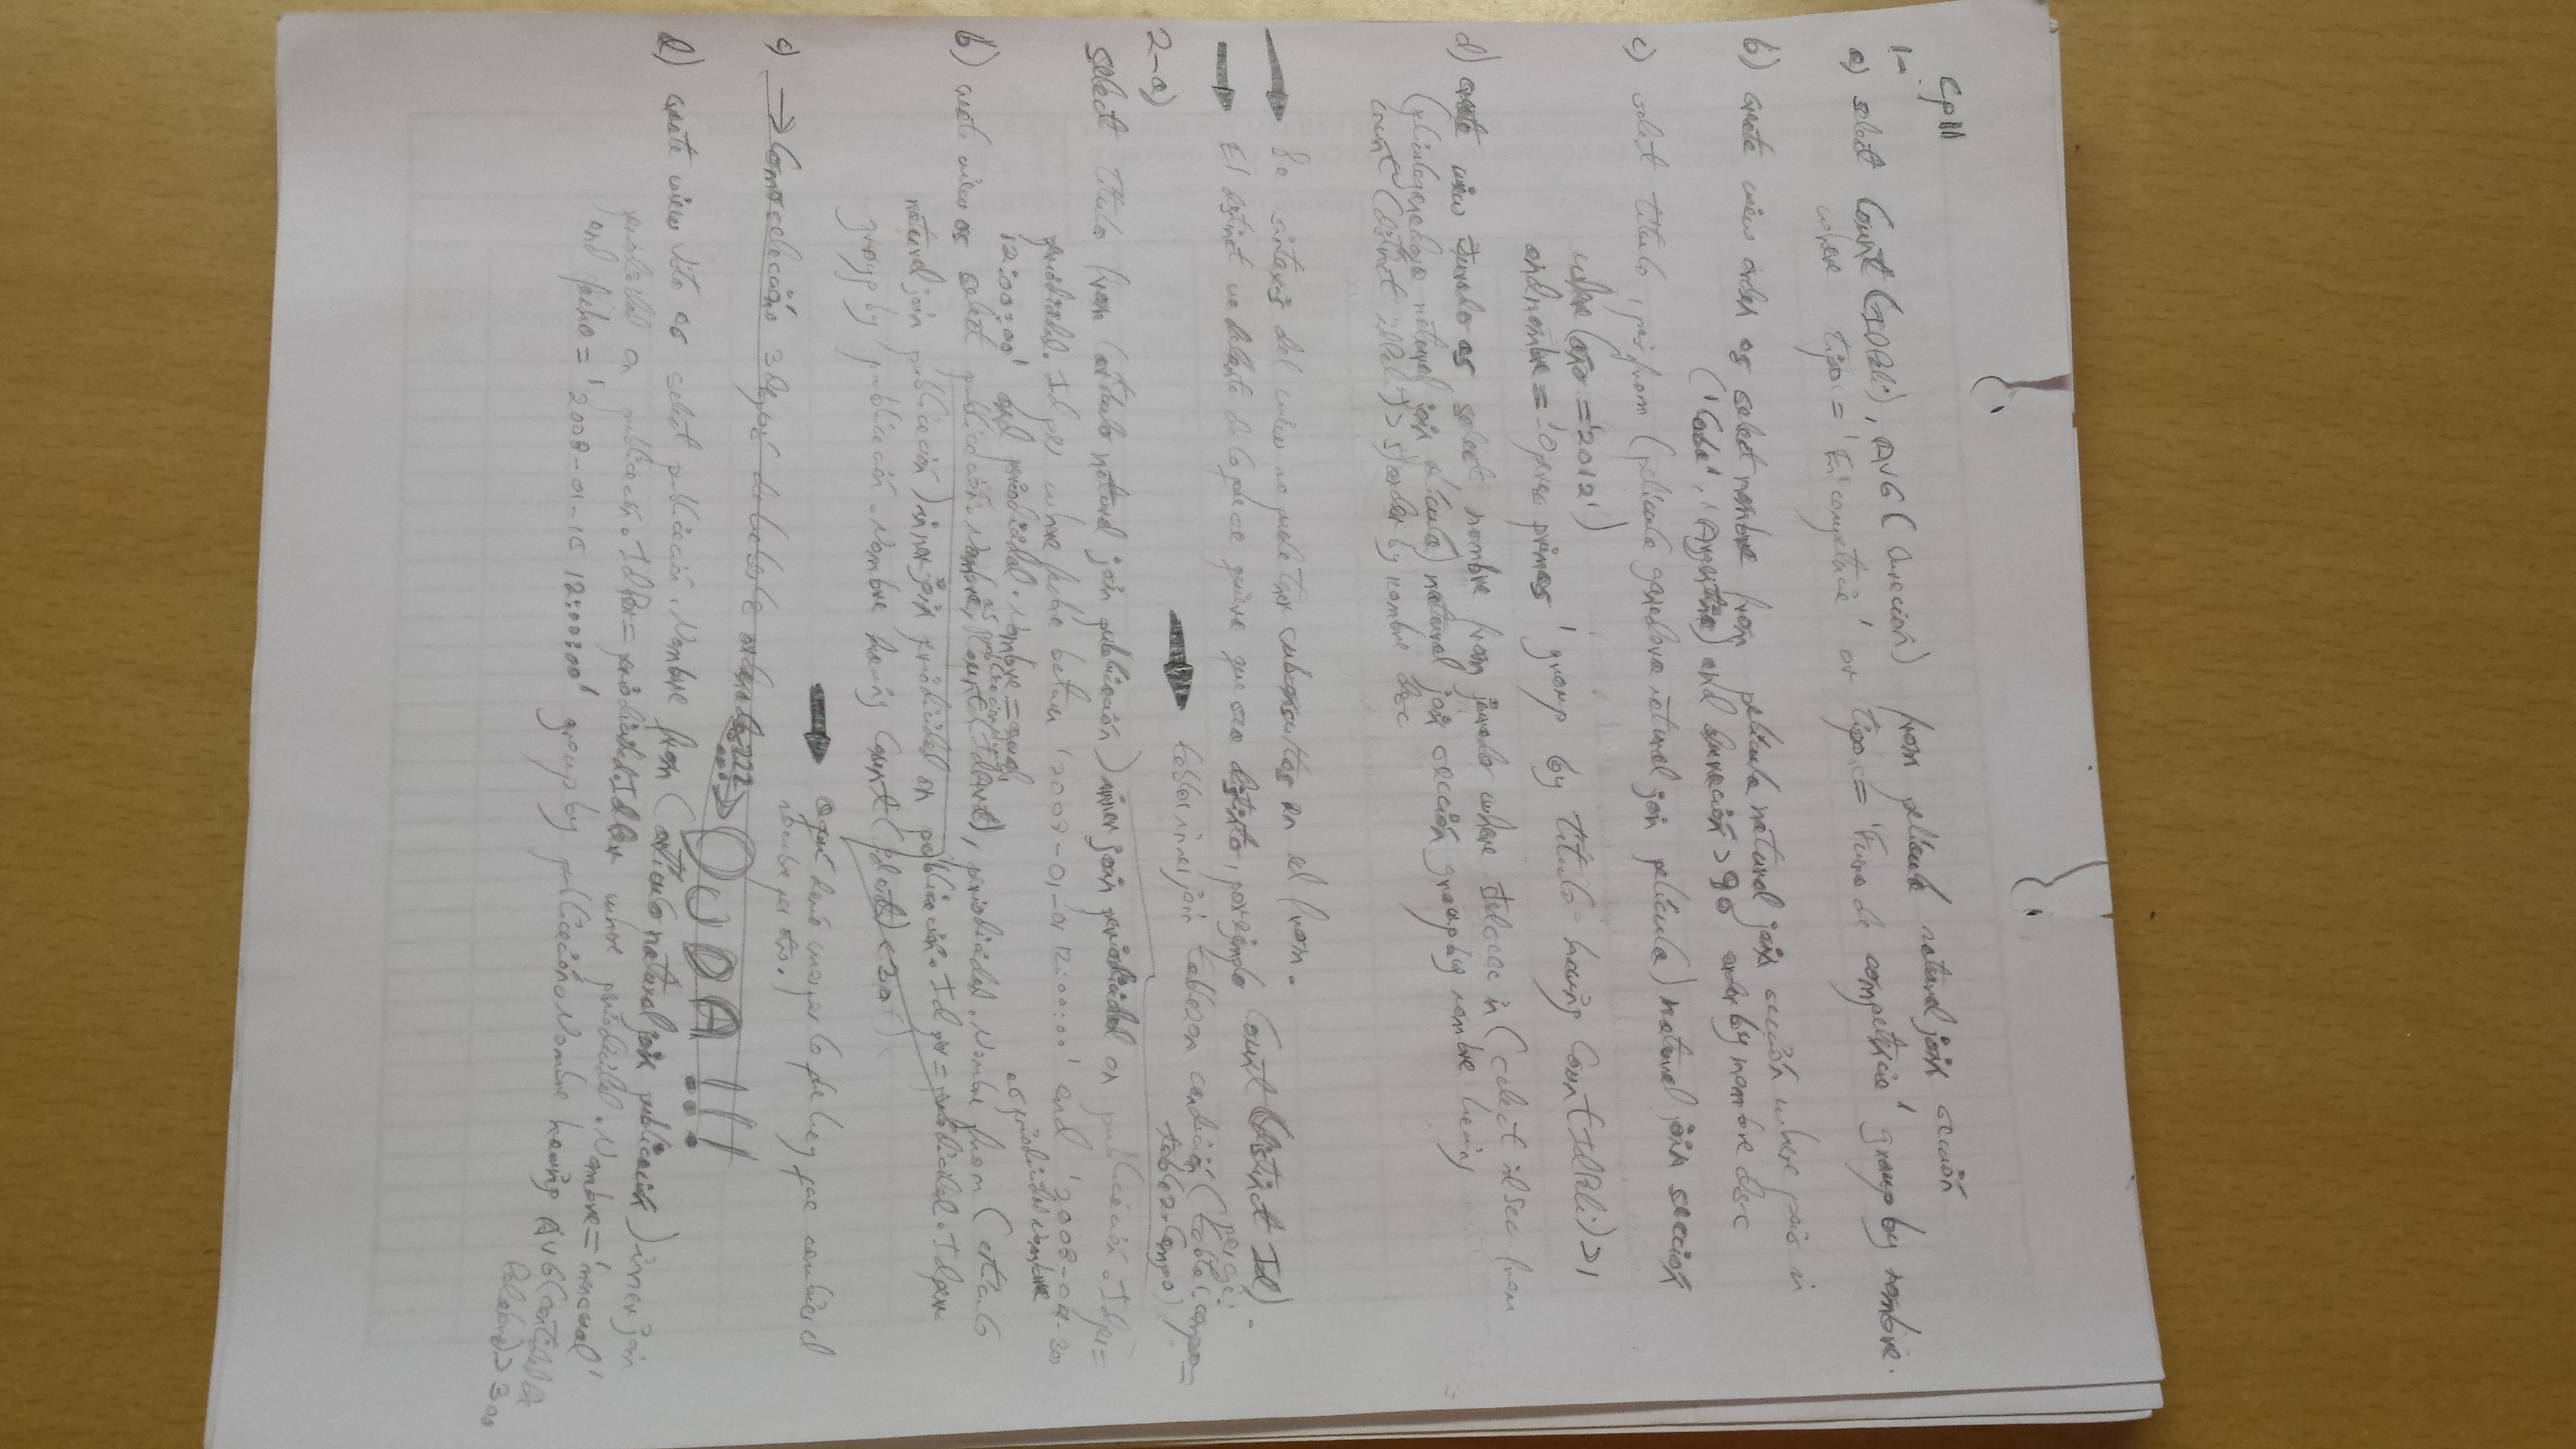 Cp 11
1-
a) select Count (IDPeli), AVG (duracion) from pelicula natural join seccion
where tipoc = 'En competencia' or tipoc = 'Fuera de competencia' group by nombre.
b) create view orden as select nombre from pelicula natural join sección where pais in
('Cuba', 'Argentina) and duración > 90 order by nombre desc
c) select titulo, pais from (pelicula ganadora natural join película) natural join sección
where (año = '2012')
and nombre = 'Operas primas' group by titulo having Count (IDPeli) > 1
d) create view jurado as select nombre from jurado where idsecc in (select idsec from
(peliculaganadora natural join pelicula) natural join sección group by nombre having
count (distinct idPeli) > 5) order by nombre desc
La sintaxis del view no puede tener subconsultas en el from.
El distinct va delante de lo que se quiere que sea distinto, por ejemplo Count (distinct Id)
tabla1 inner join tabla2 on condición (tabla1.campo =
tabla2.campo)
2-a)
select titulo from (articulo natural join publicación) inner join periodicidad on publicación.Idper =
periodicidad.Idper where fecha between '2007-01-01 12:00:00' and '2008-04-30
12:00:00' and periodicidad.Nombre =
b) create view as select publicación.Nombre, Count (Idart), periodicidad.Nombre from (articulo
natural join publicación) inner join periodicidad on publicación.Idper = periodicidad.Idper
group by publicación.Nombre having Count (idart) < 30
aquí dentro lo que hay que cambiar el
nombre por otro.
c) → Como selecciono 3 después de haberla ordenado
DUDA !!!
d) create view Vista as select publicación.Nombre from (articulo natural join publicación) inner join
periodicidad on publicación.Idper = periodicidad.Idper where periodicidad.Nombre = 'mensual'
and fecha = '2008-01-10 12:00:00' group by publicación.Nombre having AVG (cantidad
Palabras) > 300